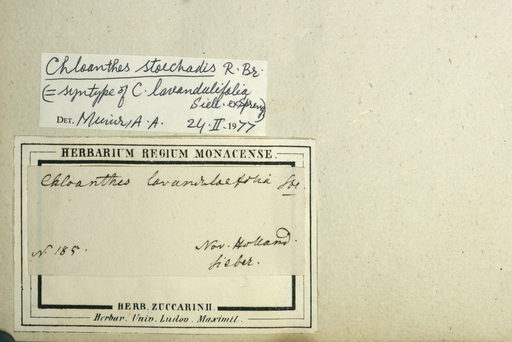 Chloanthes stoechadis R. Br.
(= syntype of C. lavandulifolia
Sieb. ex Spreng)
DET. Munir, A. A. 24-II-1977
HERBARIUM REGIUM MONACENSE.
Chloanthes lavandulaefolia
N. 185. Nov. Holland.
Sieber.
HERB. ZUCCARINII
Herbar. Univ. Ludov. Maximil.